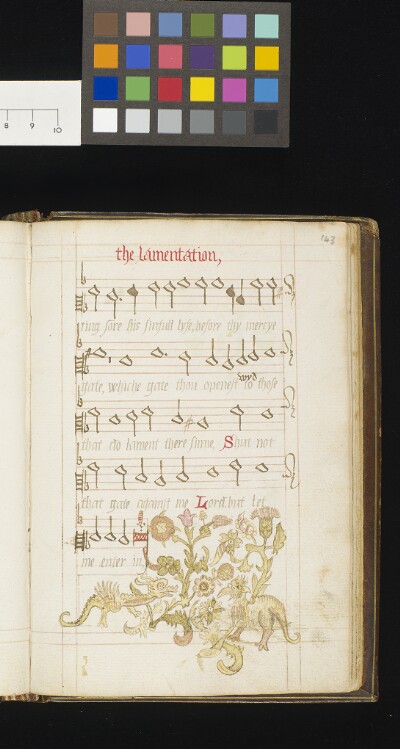 8 9 10
143
the lamentation,
ting sore his sinfull lyfe, before thy mercye
gate, whiche gate thou openest to those
that do lament there sinne, Shut not
that gate against me Lord, but let
me enter in,